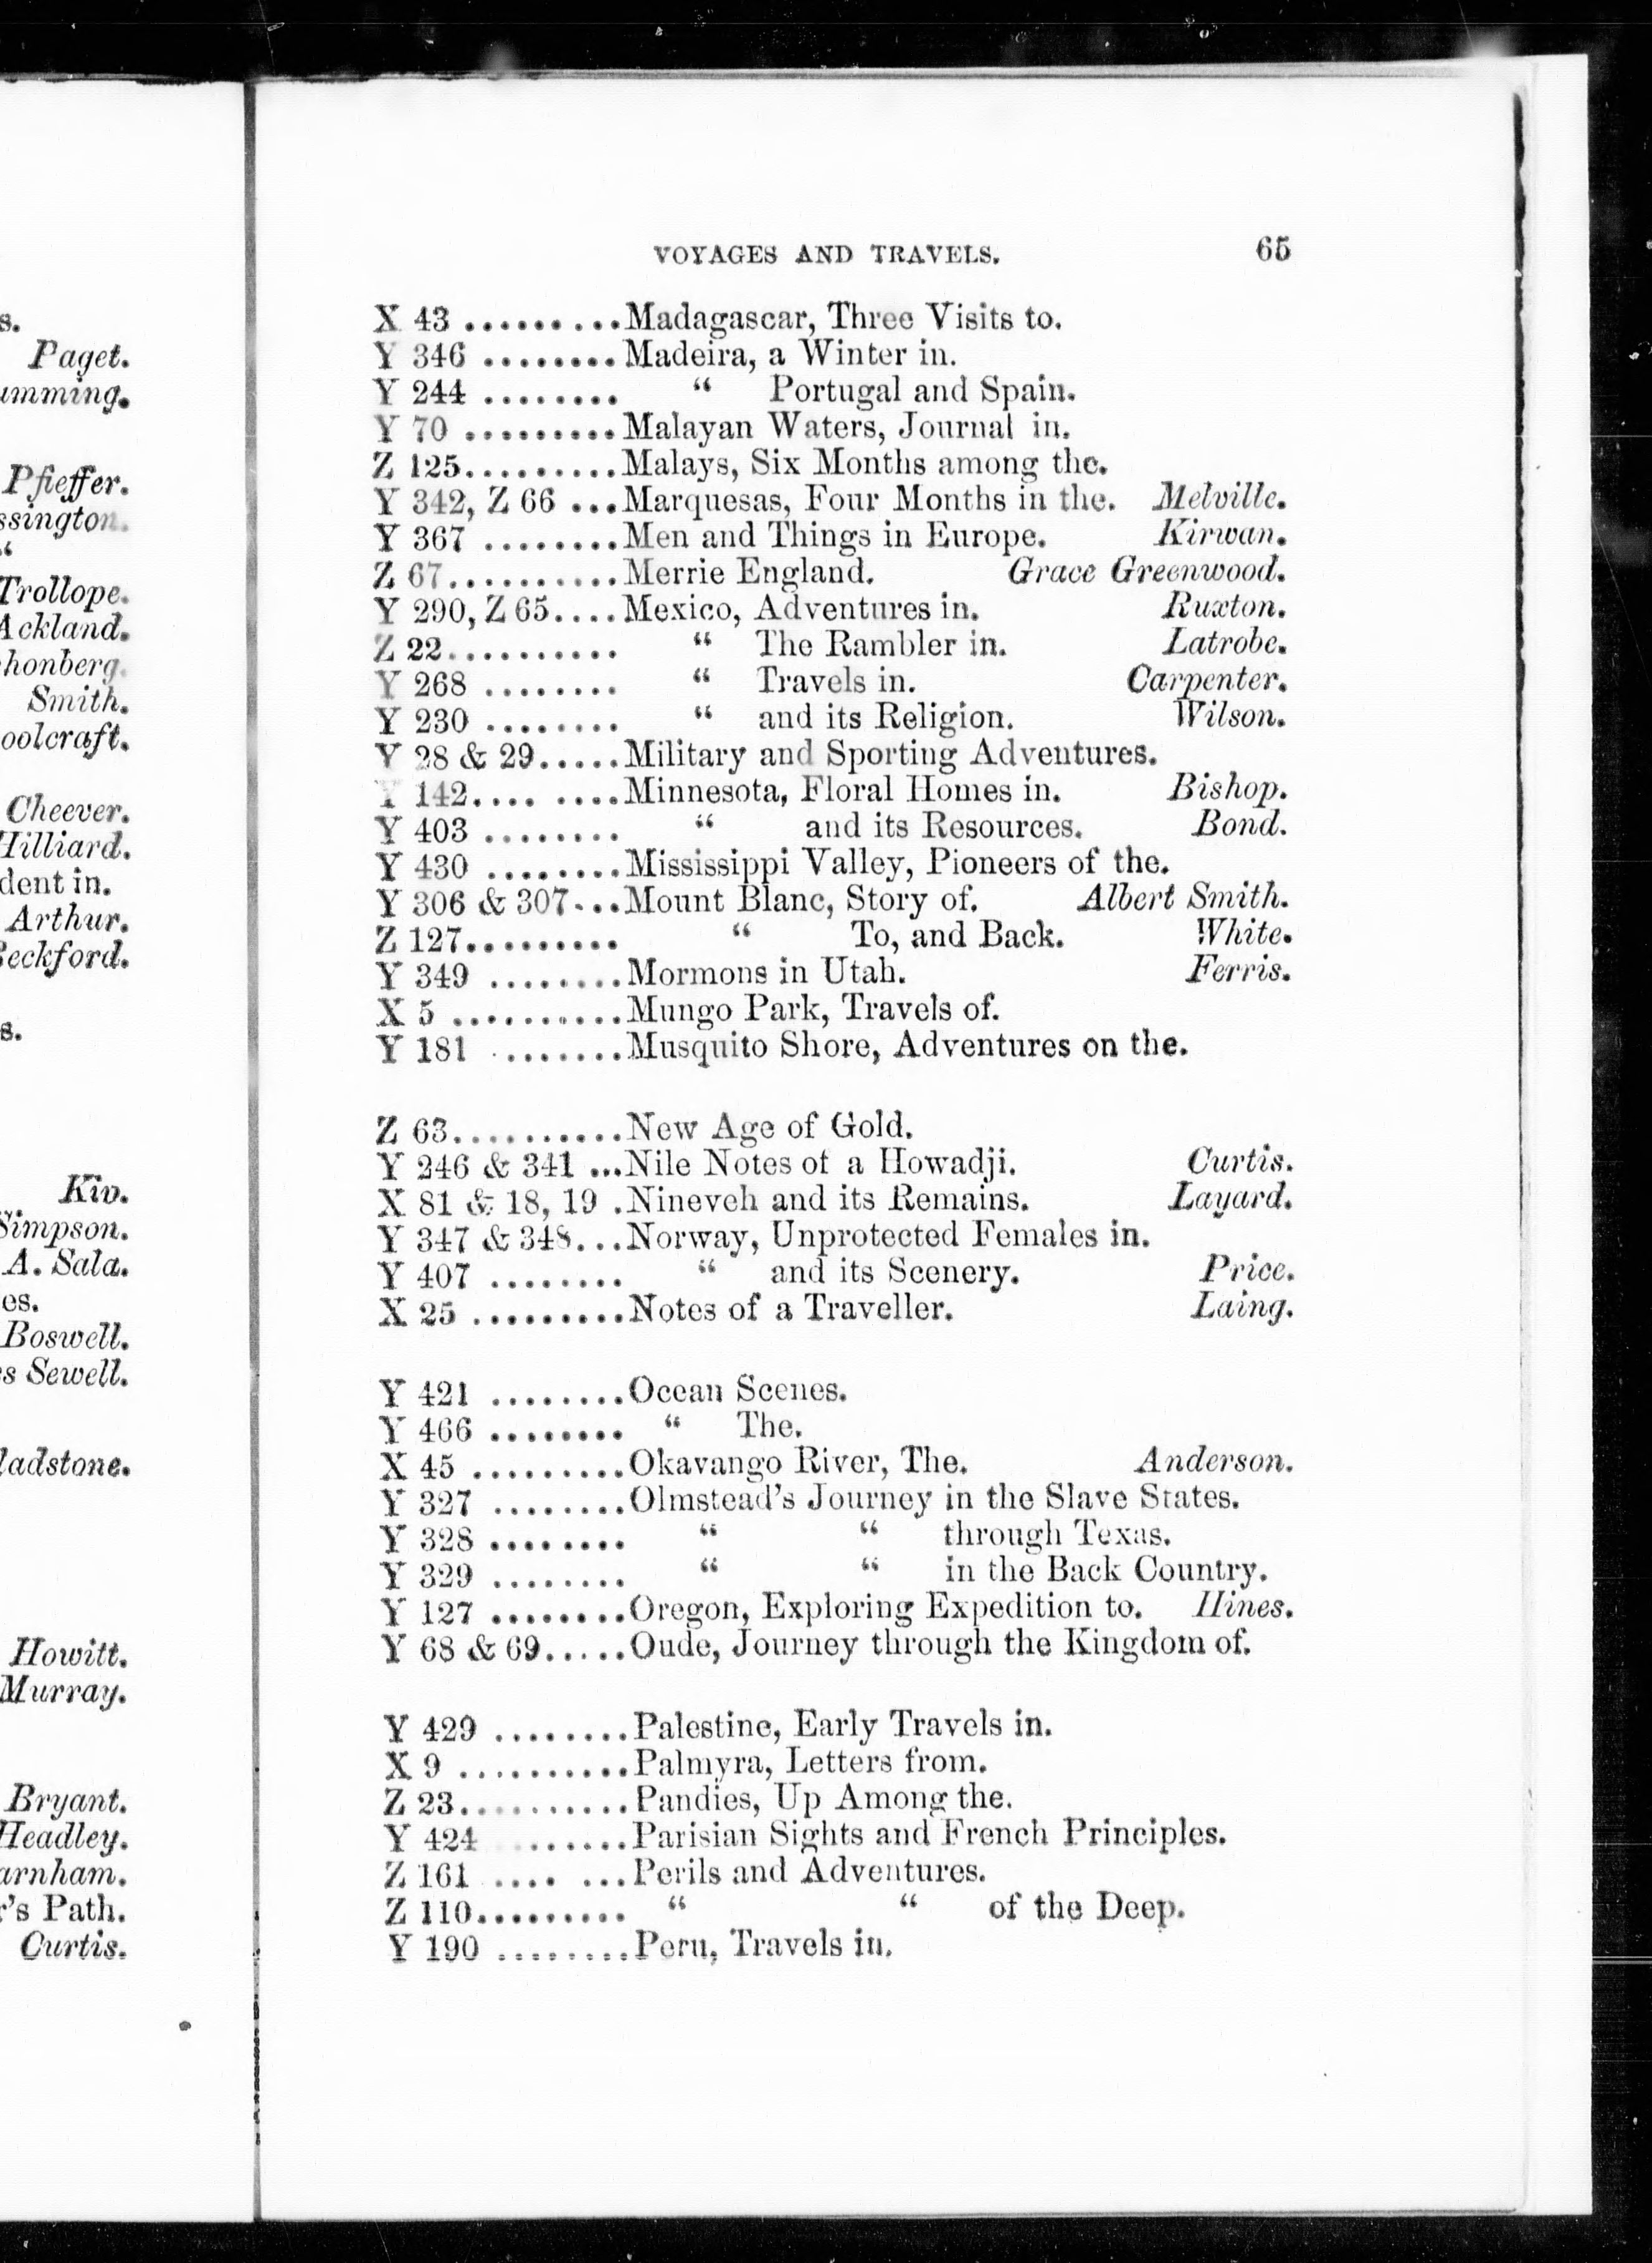 s.
Paget.
umming.
Pfieffer.
ssington.
“
Trollope.
Ackland.
honberg.
Smith.
oolcraft.
Cheever.
Hilliard.
dent in.
Arthur.
Beckford.
s.
Kiv.
Simpson.
A. Sala.
es.
Boswell.
s Sewell.
ladstone.
Howitt.
Murray.
Bryant.
Headley.
arnham.
r's Path.
Curtis.
VOYAGES AND TRAVELS. 65
X 43 .........Madagascar, Three Visits to.
Y 346 ........Madeira, a Winter in.
Y 244 ........ “ Portugal and Spain.
Y 70 .........Malayan Waters, Journal in.
Z 125.........Malays, Six Months among the.
Y 342, Z 66 ...Marquesas, Four Months in the. Melville.
Y 367 ........Men and Things in Europe. Kirwan.
Z 67..........Merrie England. Grace Greenwood.
Y 290, Z 65....Mexico, Adventures in. Ruxton.
Z 22.......... “ The Rambler in. Latrobe.
Y 268 ........ “ Travels in. Carpenter.
Y 230 ........ “ and its Religion. Wilson.
Y 28 & 29.....Military and Sporting Adventures.
Y 142.... ....Minnesota, Floral Homes in. Bishop.
Y 403 ........ “ and its Resources. Bond.
Y 430 ........Mississippi Valley, Pioneers of the.
Y 306 & 307...Mount Blanc, Story of. Albert Smith.
Z 127......... “ To, and Back. White.
Y 349 ........Mormons in Utah. Ferris.
X 5 ..........Mungo Park, Travels of.
Y 181 ........Musquito Shore, Adventures on the.
Z 63..........New Age of Gold.
Y 246 & 341 ...Nile Notes of a Howadji. Curtis.
X 81 & 18, 19 .Nineveh and its Remains. Layard.
Y 347 & 348...Norway, Unprotected Females in.
Y 407 ........ “ and its Scenery. Price.
X 25 .........Notes of a Traveller. Laing.
Y 421 ........Ocean Scenes.
Y 466 ........ “ The.
X 45 .........Okavango River, The. Anderson.
Y 327 ........Olmstead's Journey in the Slave States.
Y 328 ........ “ “ through Texas.
Y 329 ........ “ “ in the Back Country.
Y 127 ........Oregon, Exploring Expedition to. Hines.
Y 68 & 69.....Oude, Journey through the Kingdom of.
Y 429 ........Palestine, Early Travels in.
X 9 ..........Palmyra, Letters from.
Z 23..........Pandies, Up Among the.
Y 424 .......Parisian Sights and French Principles.
Z 161 .... ...Perils and Adventures.
Z 110......... “ “ of the Deep.
Y 190 ........Peru, Travels in.